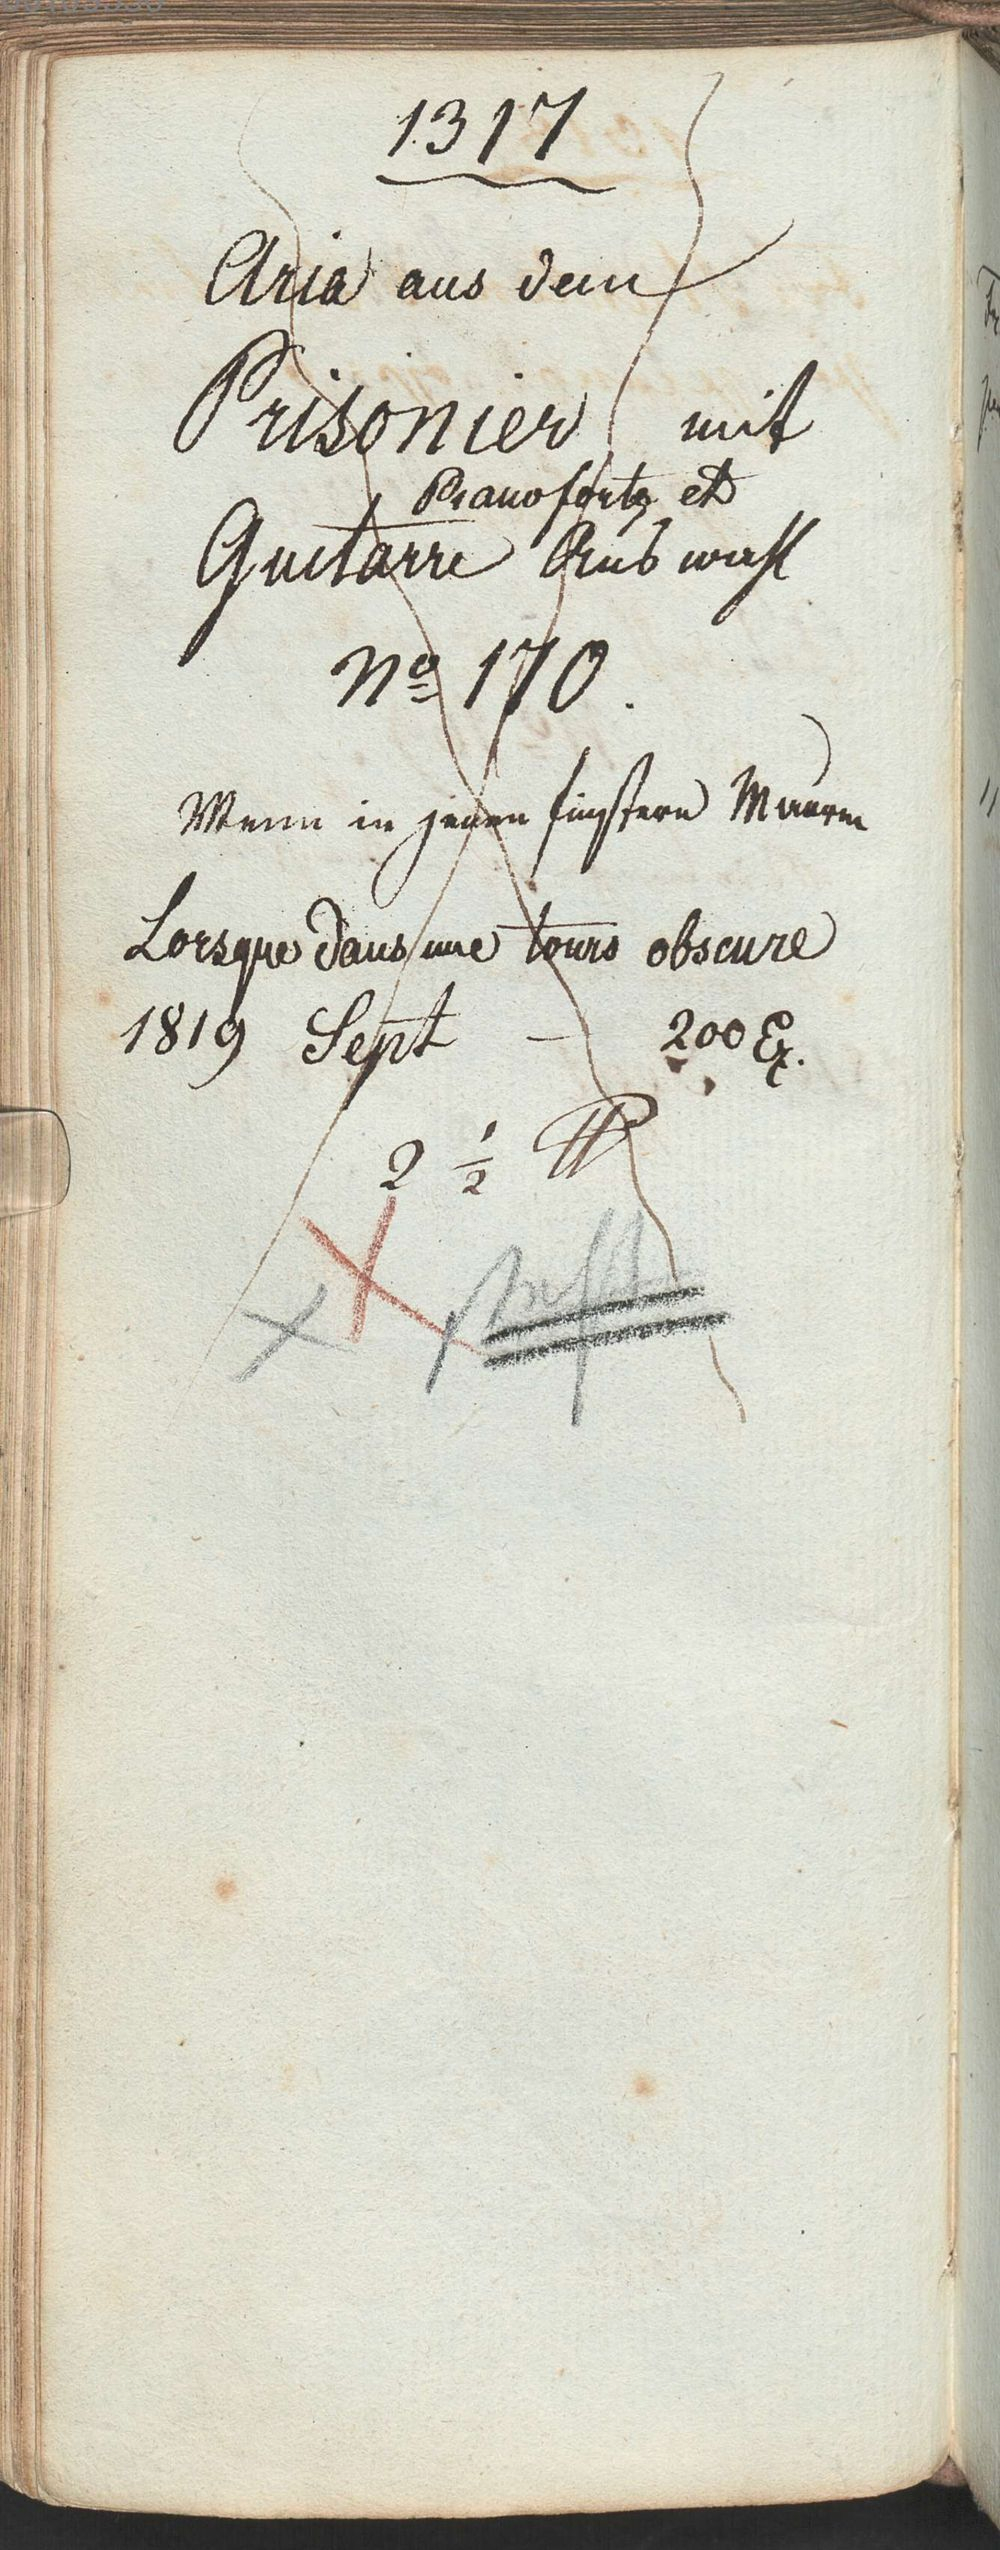 1317
Aria aus dem
Prisonier mit
Pianoforte et
Guitarre Auswahl
No 170.
Wenn in jenen finstern Mauern
Lorsque dans une tours obscure
1819 Sept – 200 Ex.
2 1/2